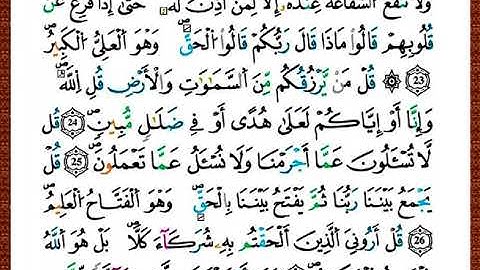 وَلَا تَنْفَعُ الشَّفَاعَةُ عِنْدَهُٓ اِلَّا لِمَنْ اَذِنَ لَهُۜ حَتّٰٓى اِذَا فُزِّعَ عَنْ
قُلُوبِهِمْ قَالُوا مَاذَا قَالَ رَبُّكُمْ قَالُوا الْحَقَّۚ وَهُوَ الْعَلِيُّ الْكَبِيرُ
23 قُلْ مَنْ يَرْزُقُكُمْ مِنَ السَّمٰوَاتِ وَالْاَرْضِ قُلِ اللّٰهُۙ
وَاِنَّٓا اَوْ اِيَّاكُمْ لَعَلٰى هُدًى اَوْ فٖي ضَلَالٍ مُبِينٍ 24 قُلْ
لَا تُسْـَٔلُونَ عَمَّٓا اَجْرَمْنَا وَلَا نُسْـَٔلُ عَمَّا تَعْمَلُونَ 25 قُلْ
يَجْمَعُ بَيْنَنَا رَبُّنَا ثُمَّ يَفْتَحُ بَيْنَنَا بِالْحَقِّۜ وَهُوَ الْفَتَّاحُ الْعَلِيمُ
26 قُلْ اَرُونِيَ الَّذِينَ اَلْحَقْتُمْ بِهٖ شُرَكَٓاءَ كَلَّاۜ بَلْ هُوَ اللّٰهُ